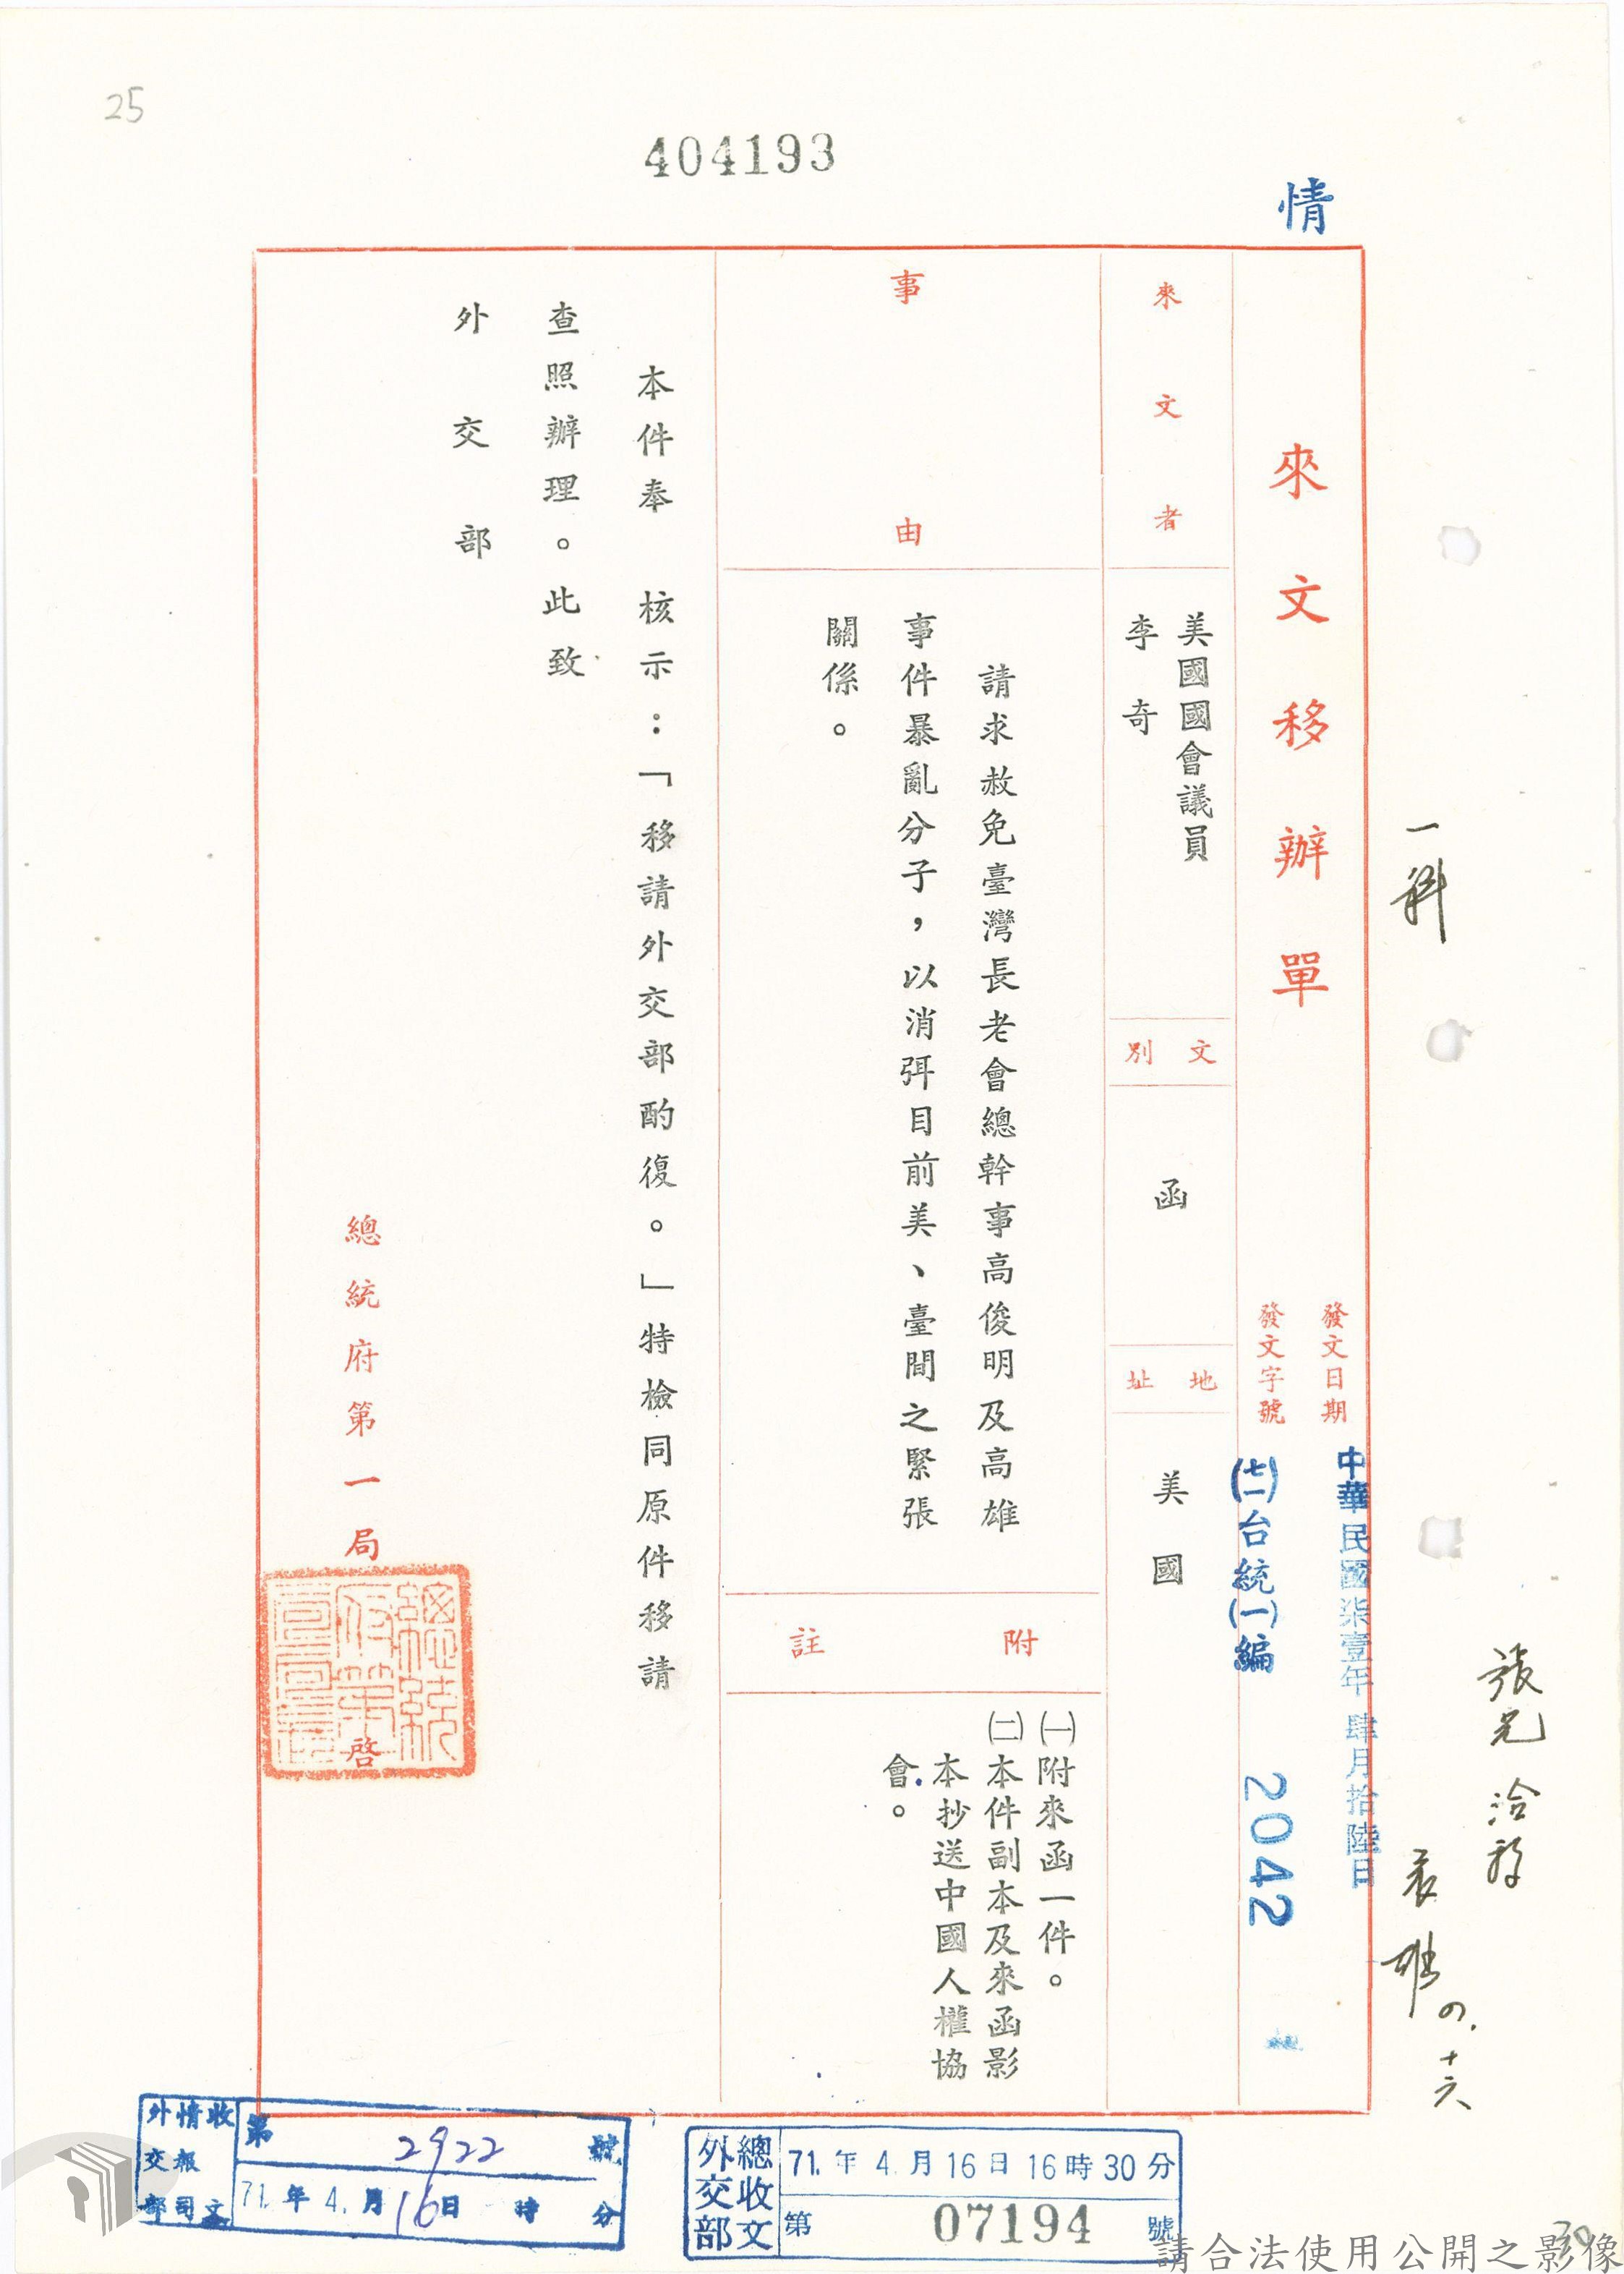 25
404193
情
來文移辦單
發文日期
中華民國柒壹年肆月拾陸日
發文字號
(七一)台統(一)編 2042
來文者
美國國會議員
李奇
文別
函
地址
美國
事由
請求赦免臺灣長老會總幹事高俊明及高雄
事件暴亂分子，以消弭目前美、臺間之緊張
關係。
附註
㈠附來函一件。
㈡本件副本及來函影
本抄送中國人權協
會。
本件奉 核示：「移請外交部酌復。」特檢同原件移請
查照辦理。此致
外交部
總統府第一局 啓
一科
四.十六
外交部情報司收文
第 2922 號
71.年 4.月 16日 時 分
外交部總收文
71.年 4.月 16日 16時 30分
第 07194 號
請合法使用公開之影像